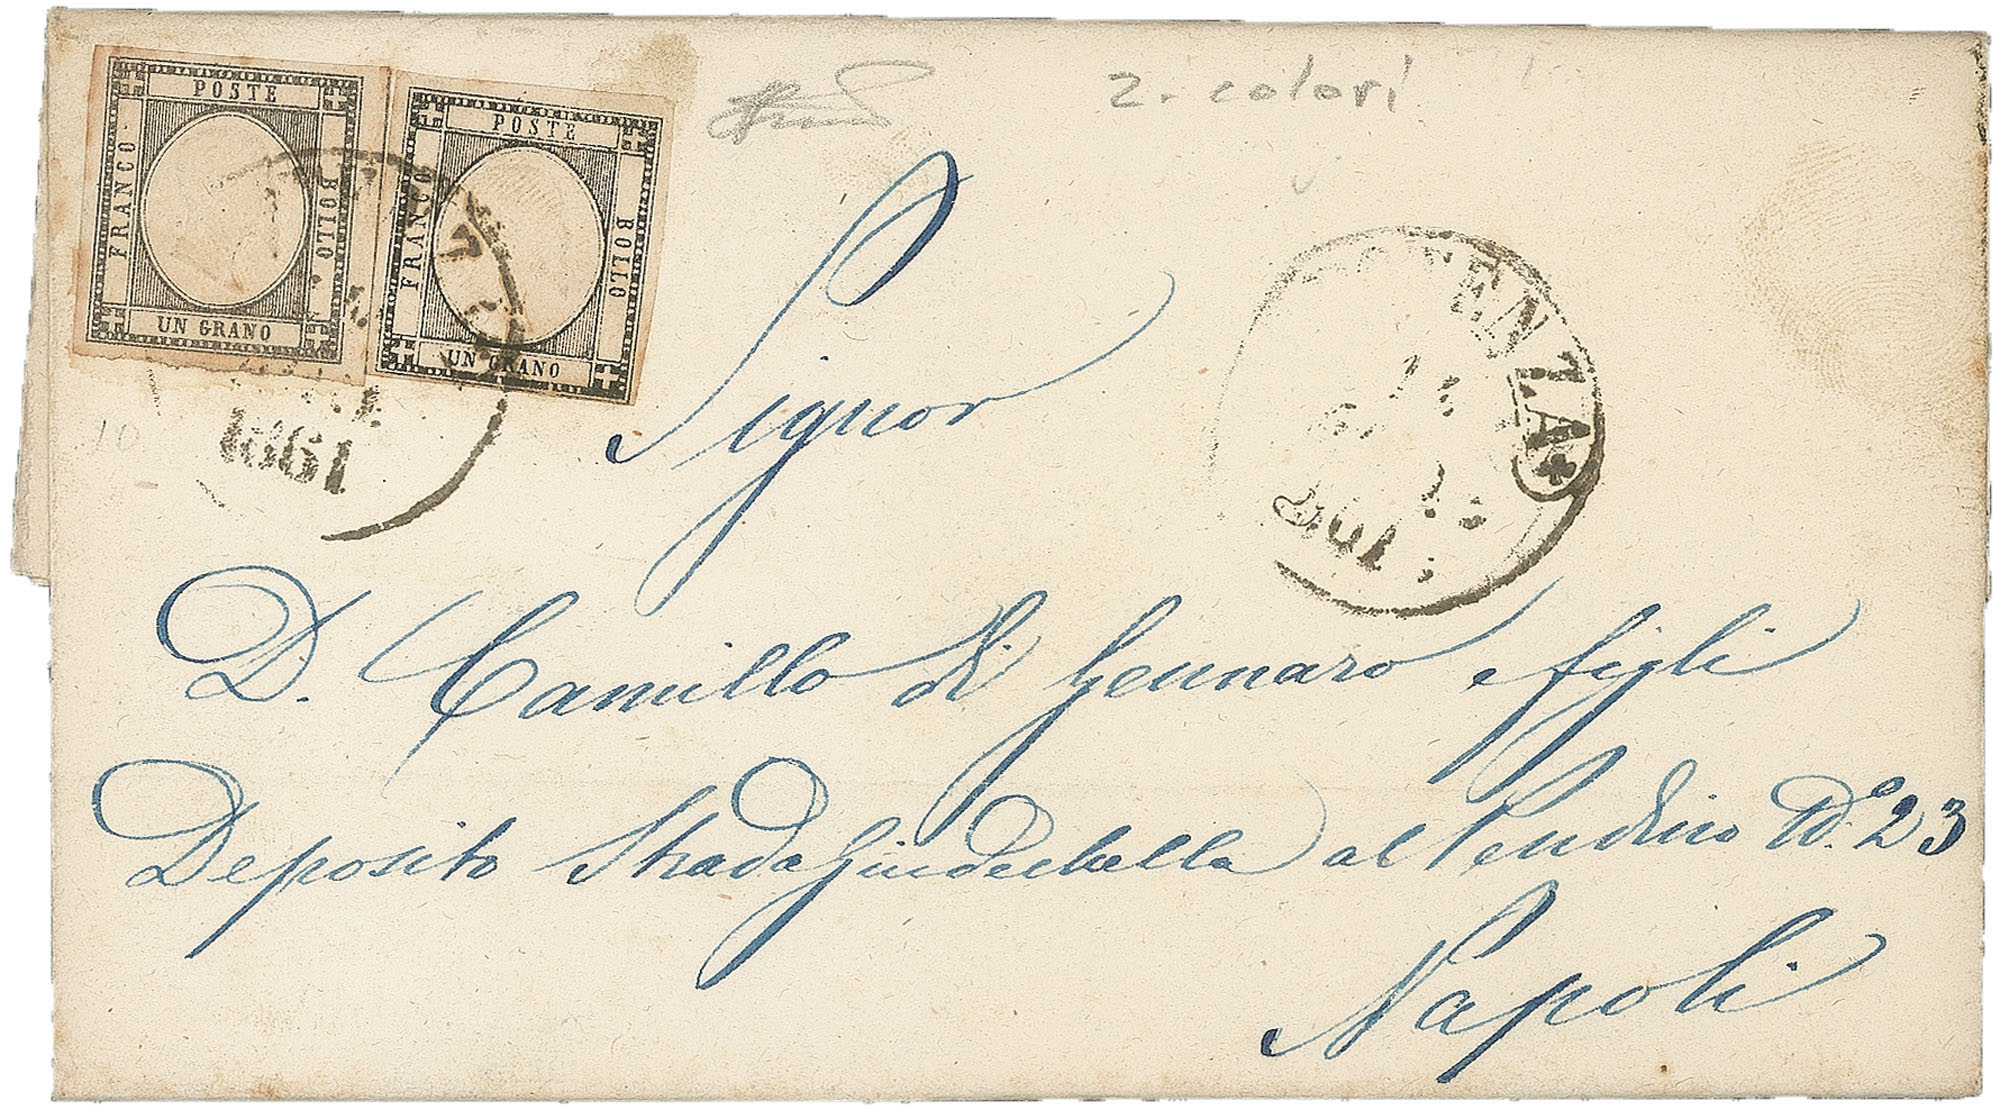 POSTE
FRANCO
BOLLO
UN GRANO
POSTE
FRANCO
BOLLO
UN GRANO
1861
2. colori
POTENZA
1861
10
Signor
D. Camillo di Gennaro e figli
Deposito Strada Giudechella al Pendino N.º 23
Napoli